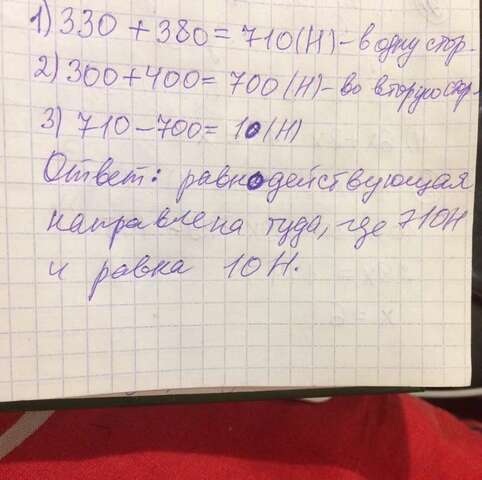 1) 330 + 380 = 710 (Н) - в одну стор.
2) 300 + 400 = 700 (Н) - во вторую стор.
3) 710 - 700 = 10 (Н)
Ответ: равнодействующая
направлена туда, где 710Н
и равна 10 Н.